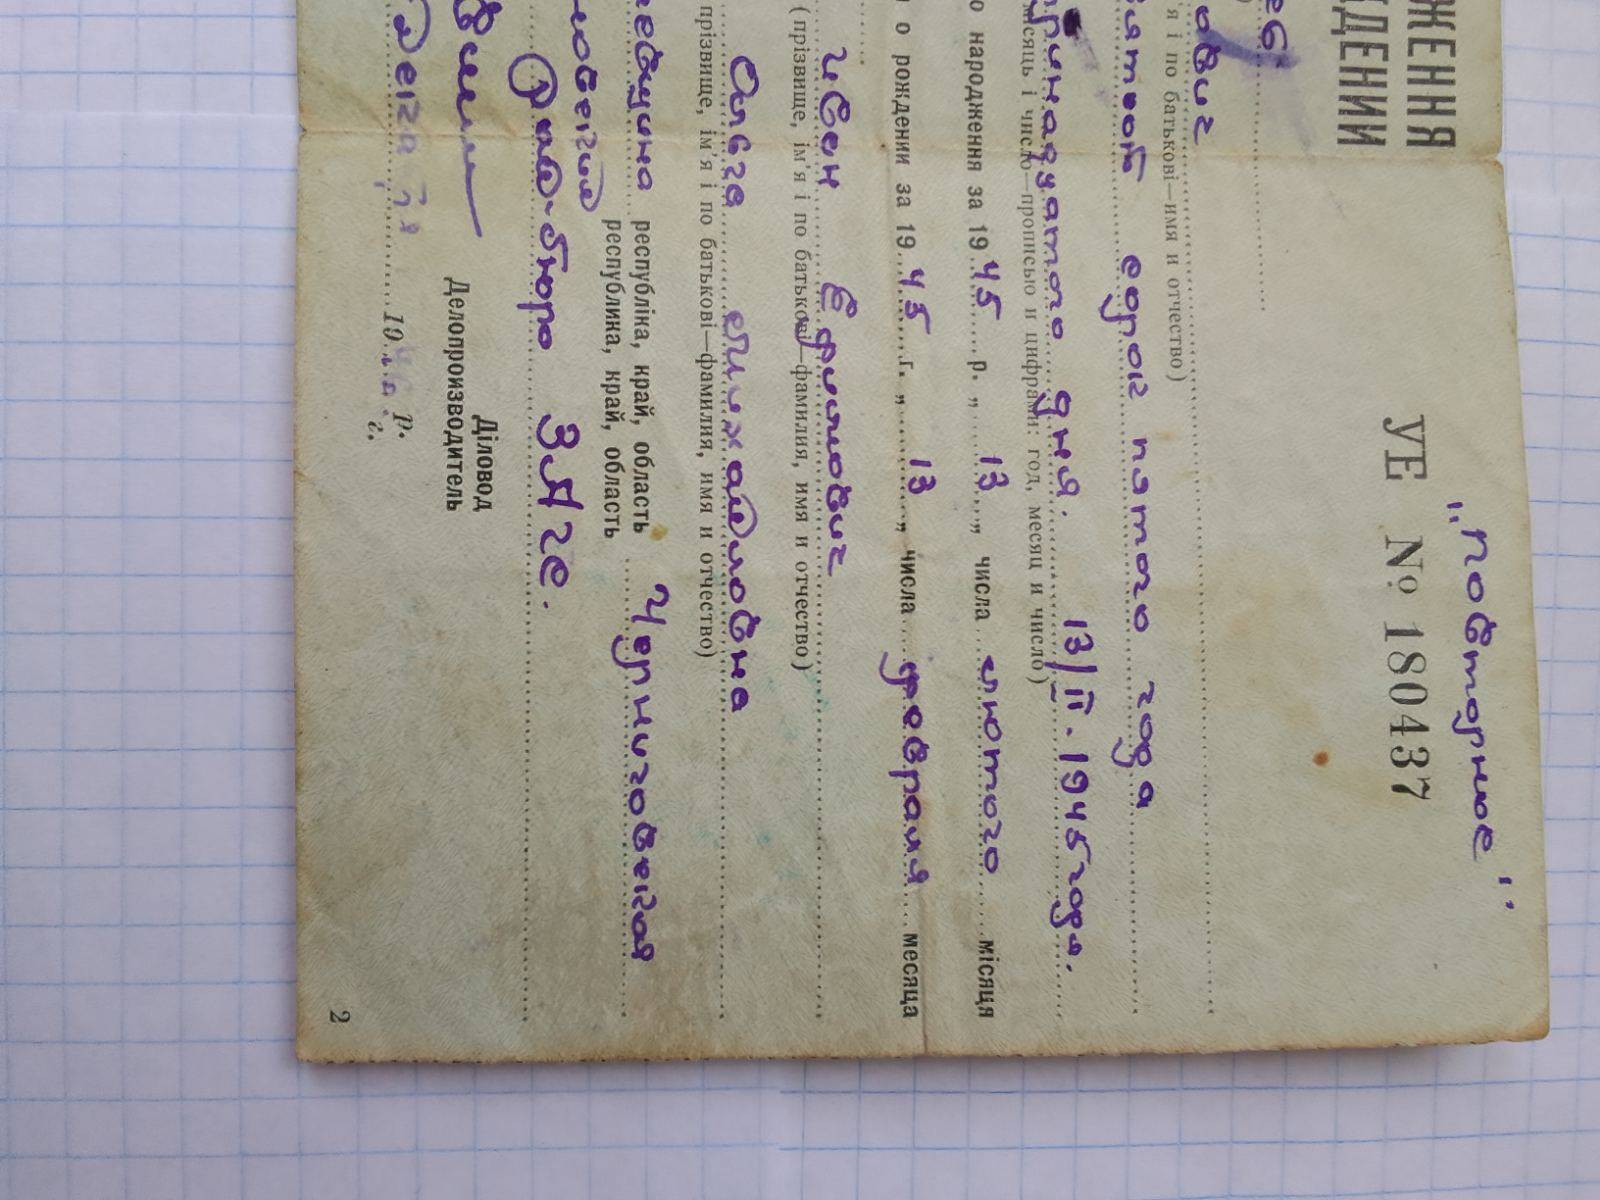 „повторное"
ЖЕННЯ
ДЕНИИ
УЕ № 180437
ович
я і по батькові—имя и отчество)
сорок пятого года
тринадцатого дня. 13/II. 1945 года.
місяць і число—прописью и цифрами: год, месяц и число)
о народження за 1945 р. „ 13 „ числа лютого місяця
о рождении за 1945 г. „ 13 „ числа февраля месяца
Ефимович
(прізвище, ім'я і по батькові—фамилия, имя и отчество)
Ольга Михайловна
прізвище, ім'я і по батькові—фамилия, имя и отчество)
республіка, край, область
республика, край, область
Черниговская
Рай-бюро ЗАГС.
Діловод
Делопроизводитель
1946 р.
г.
2